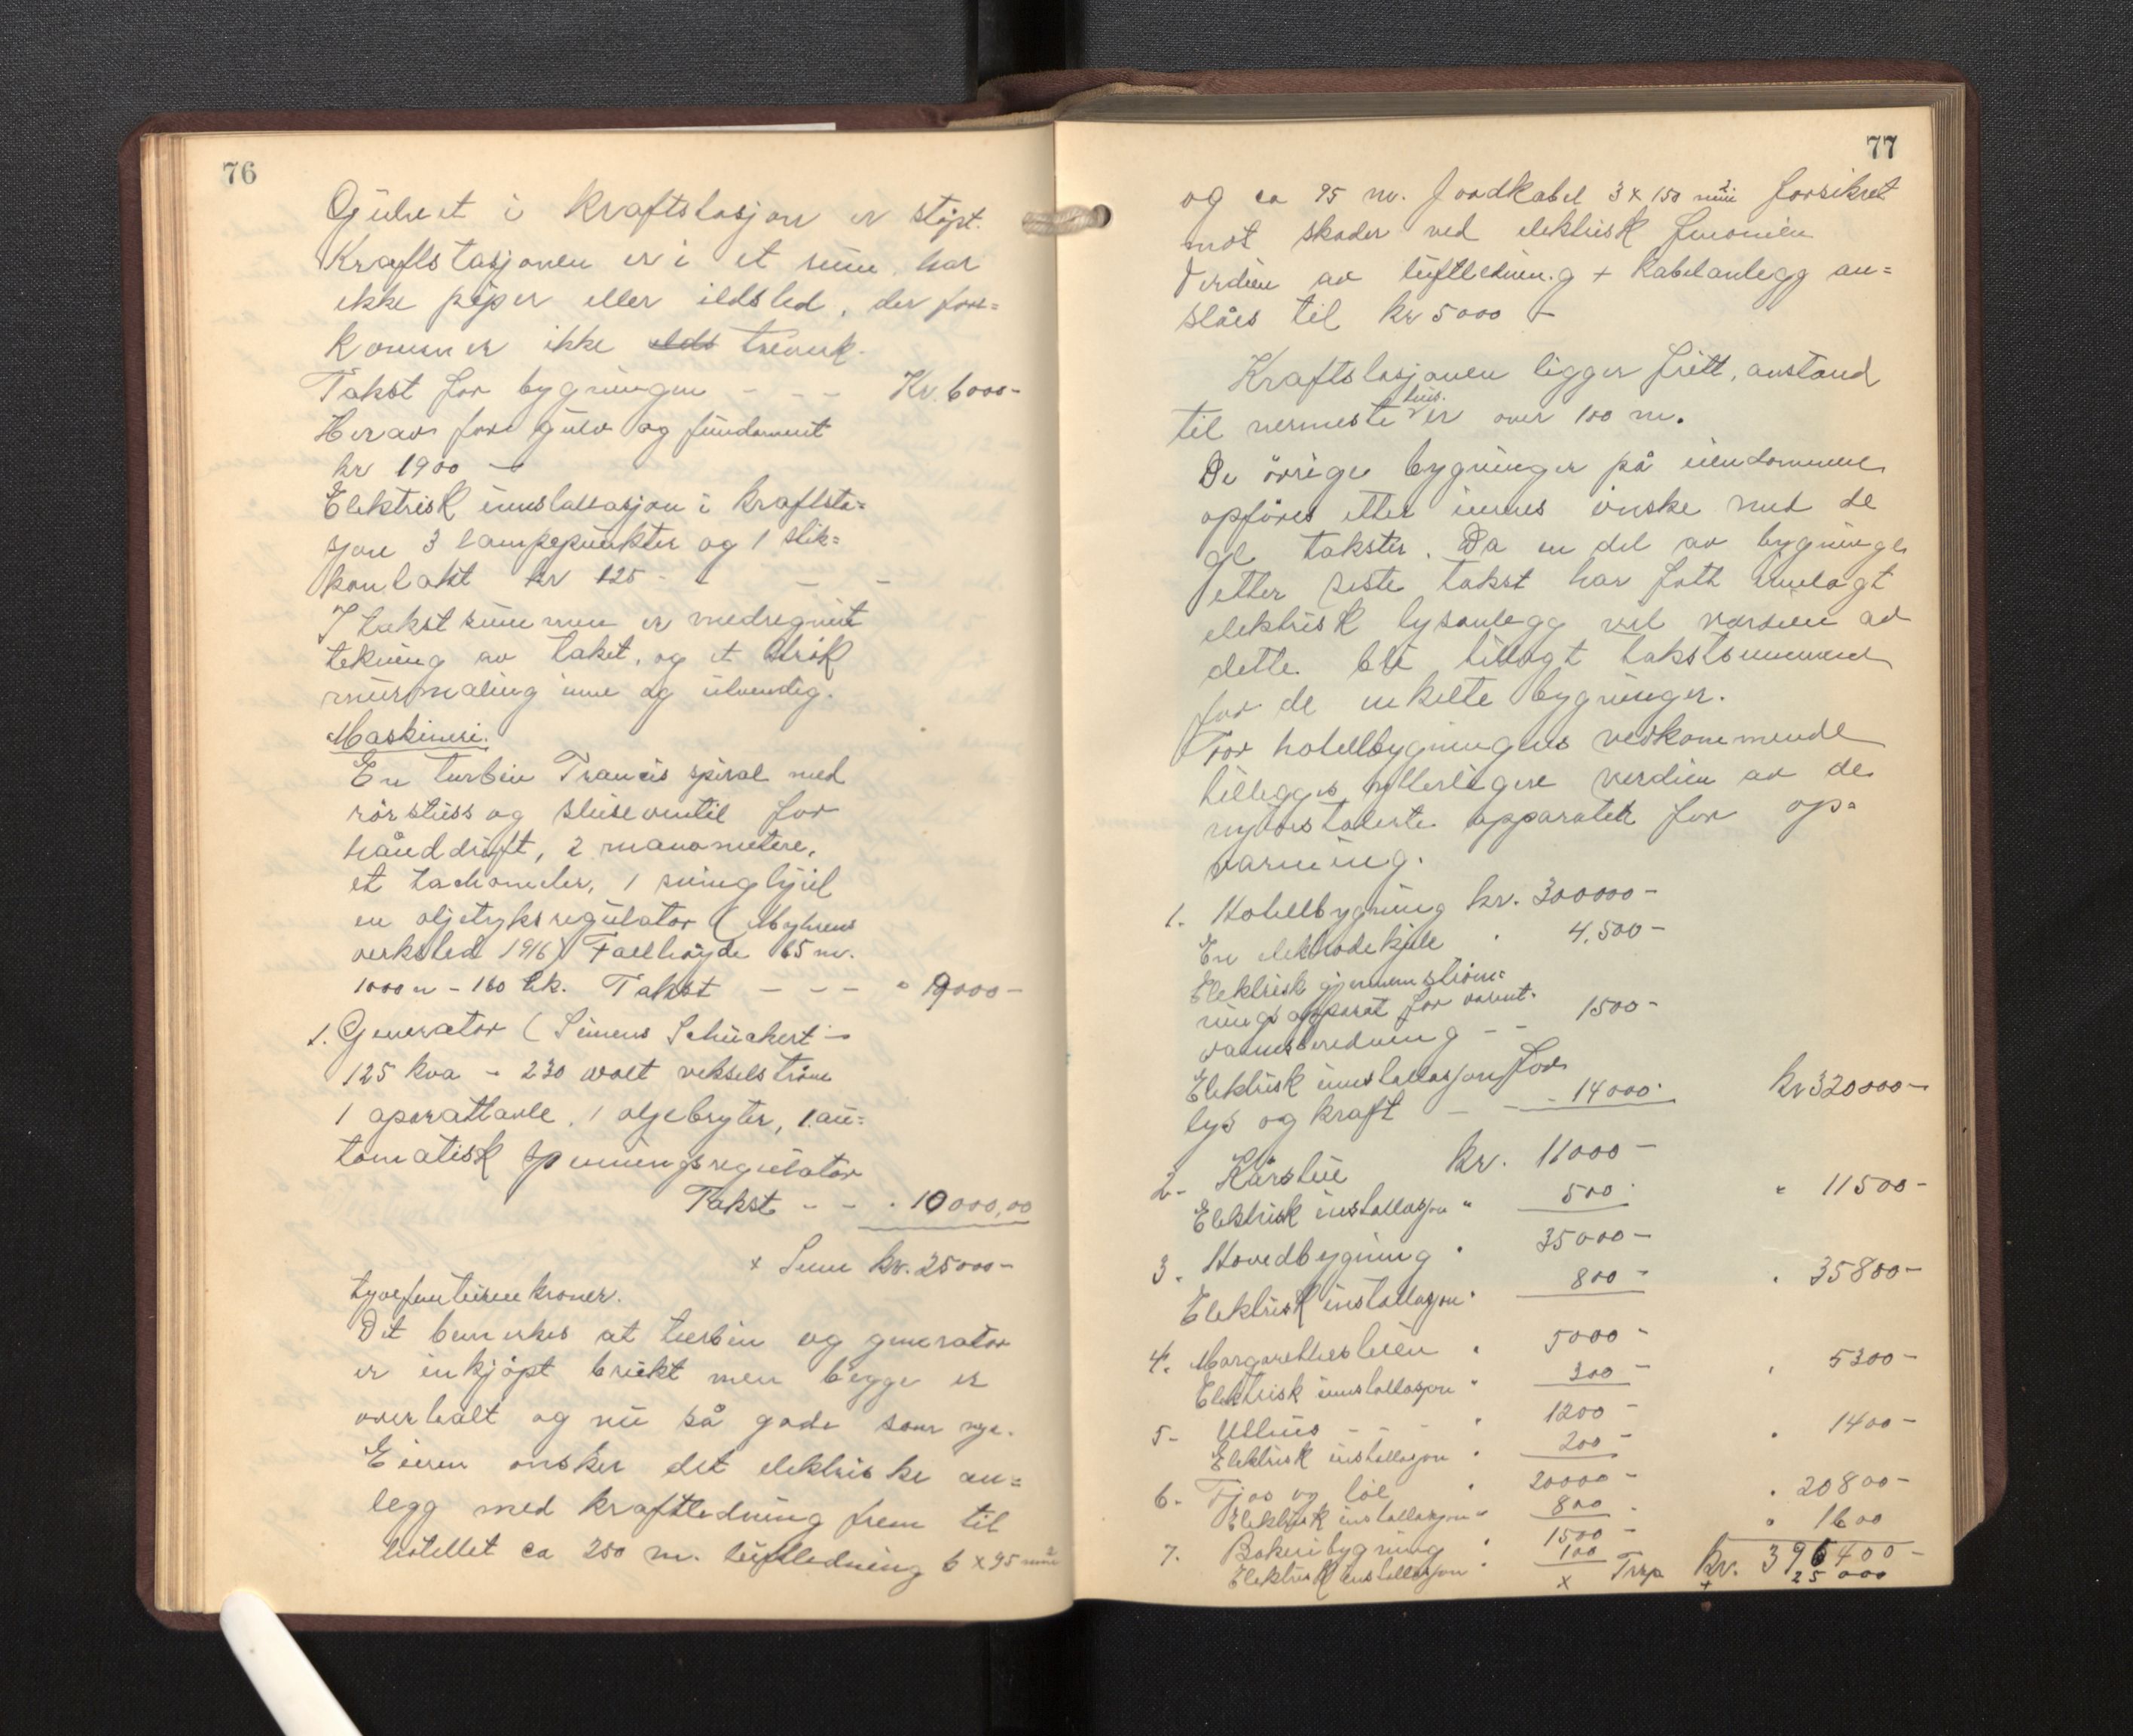 76
Gulvet i kraftstasjon er støpt.
Kraftstasjonen er i et rum, har
ikke piper eller ildsted, der fore=
kommer ikke trevirk.
Takst for bygningen - - - Kr. 6000-
Herav for gulv og fundament
kr 1900 -
Elektrisk innstallasjon i kraftsta=
sjon 3 lampepunkter og 1 stik=
kontakt kr 125 - - - -
I takstsummen er medregnet
tekning av taket, og et strøk
murmaling inne og utvendig.
Maskineri.
En turbin Francis spiral med
rørstuss og sluseventil for
hånddrift, 2 manometere,
et tachometer, 1 svinghjul
en oljetryksregulator (Myhrens
verksted 1916) Fallhøyde 65 m.
1000 n - 160 hk. Takst - - - " 9000-
1. Generator (Simens Schuckert -
125 kva - 230 volt vekselstrøm
1 aparattavle, 1 oljebryter, 1 au=
tomatisk spenningsregulator
Takst - - . 10000,00
x Sum kr. 25000-
tyvefemtusen kroner.
Det bemerkes at turbin og generator
er innkjøpt brukt men begge er
overhalt og nu så gode som nye.
Eieren ønsker det elektriske an=
legg med kraftledning frem til
hotellet ca 250 m. luftledning 6 x 95 mm2
77
og ca 95 m. Jordkabel 3 x 150 mm2 forsikret
mot skader ved elektrisk fenomen
Verdien av luftledning + Kabelanlegg an=
slåes til kr 5000 -
Kraftstasjonen ligger fritt, avstand
til nermeste hus er over 100 m.
De øvrige bygninger på eiendommen
opføres etter eiernes ønske med de
gl takster. Da en del av bygninger
etter siste takst har fått innlagt
elektrisk lysanlegg vil verdien av
dette bli tillagt takstsummen
for de enkelte bygninger.
For hotellbygningens vedkommende
tillegges ytterligere verdien av de
nyinstalerte apparater for op=
varming.
1. Hotellbygning kr. 300000-
En elektrodekjele " 4,500-
Elektrisk gjennemstrøm=
ningsapparat for varmt=
vannsberedning - - 1500-
Elektrisk innstallasjon for
lys og kraft - - - 14000- kr 320000-
2- Kårstue kr. 11000-
Elektrisk installasjon " 500- " 11500-
3. Hovedbygning " 35000-
Elektrisk installasjon " 800- " 35800-
4. Margarethestuen " 5000-
Elektrisk innstallasjon " 300- " 5300-
5- - - " 1200-
Elektrisk installasjon " 200- " 1400-
6- Fjøs og løe " 20000-
Elektrisk installasjon " 800- " 20800-
7. Bakeribygning " 1500- " 1600
Elektrisk installasjon " 100
x Trsp kr. 396400-
+ 25000